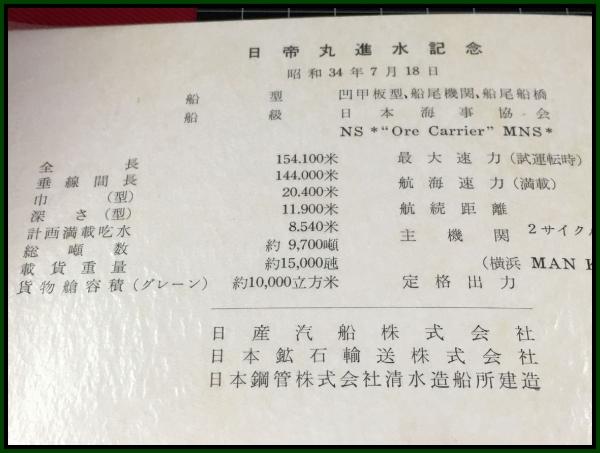 日帝丸進水記念
昭和34年7月18日
船型 凹甲板型、船尾機関、船尾船橋
船級 日本海事協会
NS *“Ore Carrier” MNS*
全長 154.100米 最大速力(試運転時)
垂線間長 144.000米 航海速力(満載)
巾(型) 20.400米 航続距離
深さ(型) 11.900米 主機関 2サイクル
計画満載吃水 8.540米 (横浜 MAN K
総噸数 約 9,700噸 定格出力
載貨重量 約15,000瓲
貨物艙容積(グレーン) 約10,000立方米
日産汽船株式会社
日本鉱石輸送株式会社
日本鋼管株式会社清水造船所建造